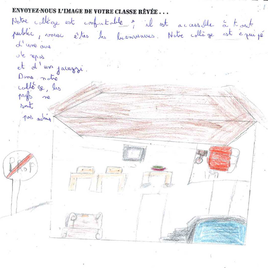 ENVOYEZ-NOUS L'IMAGE DE VOTRE CLASSE RÊVÉE . . .
Notre collège est confortable, il est accessible à tout
public, vous êtes les bienvenus. Notre collège est équipé
d'une aire
de repos
et d'un garage
Dans notre
collège, les
profs ne
sont
pas